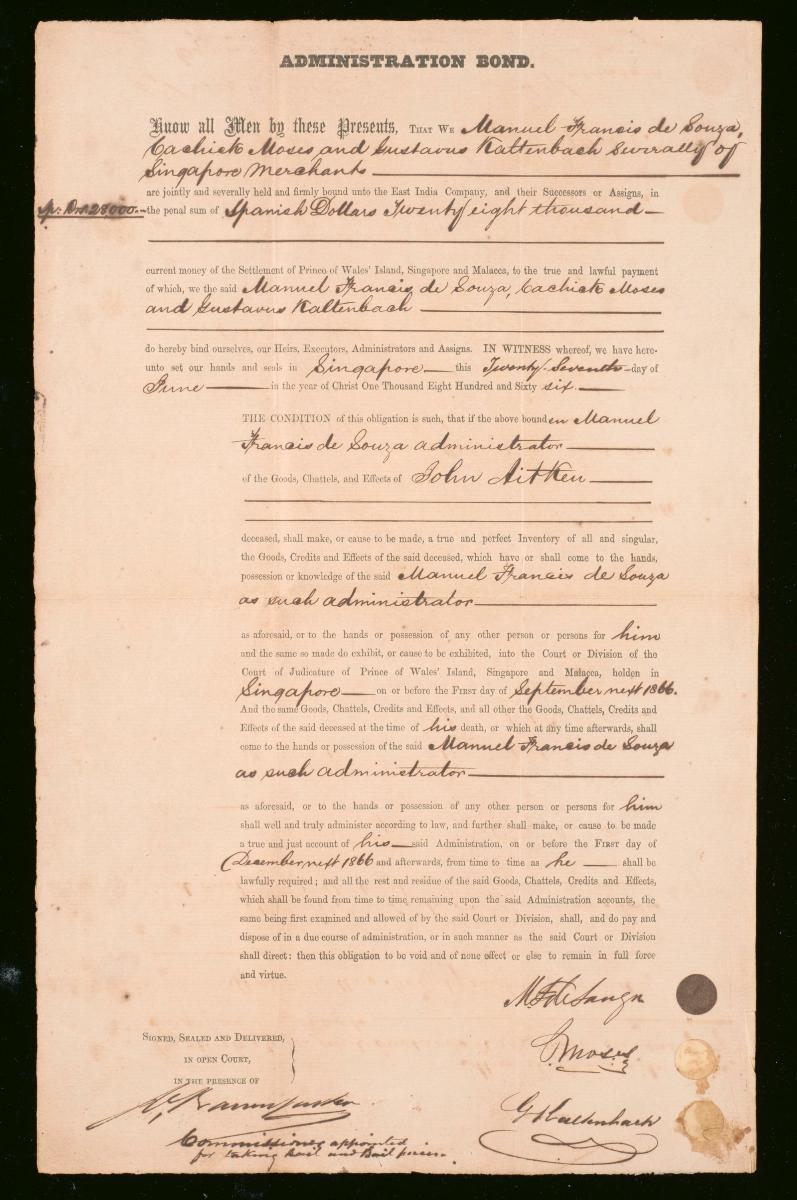 ADMINISTRATION BOND.
Know all Men by these Presents, THAT WE Manuel Francis de Souza,
Cachick Moses and Gustavus Kaltenbach Severally of
Singapore Merchants
are jointly and severally held and firmly bound unto the East India Company, and their Successors or Assigns, in
Sp: Drs. 28000.— the penal sum of Spanish Dollars Twenty eight thousand
current money of the Settlement of Prince of Wales' Island, Singapore and Malacca, to the true and lawful payment
of which, we the said Manuel Francis de Souza, Cachick Moses
and Gustavus Kaltenbach
do hereby bind ourselves, our Heirs, Executors, Administrators and Assigns. IN WITNESS whereof, we have here-
unto set our hands and seals in Singapore this Twenty Seventh day of
June in the year of Christ One Thousand Eight Hundred and Sixty six.
THE CONDITION of this obligation is such, that if the above bounden Manuel
Francis de Souza administrator
of the Goods, Chattels, and Effects of John Aitken
deceased, shall make, or cause to be made, a true and perfect Inventory of all and singular,
the Goods, Credits and Effects of the said deceased, which have or shall come to the hands,
possession or knowledge of the said Manuel Francis de Souza
as such administrator
as aforesaid, or to the hands or possession of any other person or persons for him
and the same so made do exhibit, or cause to be exhibited, into the Court or Division of the
Court of Judicature of Prince of Wales' Island, Singapore and Malacca, holden in
Singapore on or before the FIRST day of September next 1866.
And the same Goods, Chattels, Credits and Effects, and all other the Goods, Chattels, Credits and
Effects of the said deceased at the time of his death, or which at any time afterwards, shall
come to the hands or possession of the said Manuel Francis de Souza
as such administrator
as aforesaid, or to the hands or possession of any other person or persons for him
shall well and truly administer according to law, and further shall make, or cause to be made
a true and just account of his said Administration, on or before the FIRST day of
December next 1866 and afterwards, from time to time as he shall be
lawfully required; and all the rest and residue of the said Goods, Chattels, Credits and Effects,
which shall be found from time to time remaining upon the said Administration accounts, the
same being first examined and allowed of by the said Court or Division, shall, and do pay and
dispose of in a due course of administration, or in such manner as the said Court or Division
shall direct: then this obligation to be void and of none effect or else to remain in full force
and virtue.
M F de Souza
C Moses
G Kaltenbach
SIGNED, SEALED AND DELIVERED,
IN OPEN COURT,
IN THE PRESENCE OF
Commissioner appointed
for taking Bail and Bail pieces.